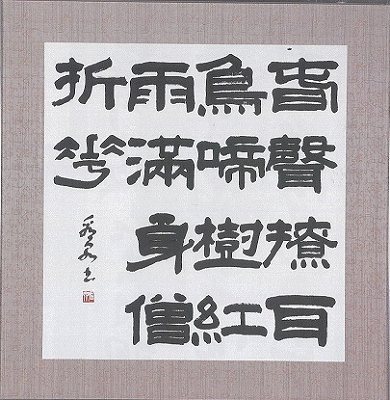 春聲撩耳
鳥啼樹紅
雨滿身僧
折花